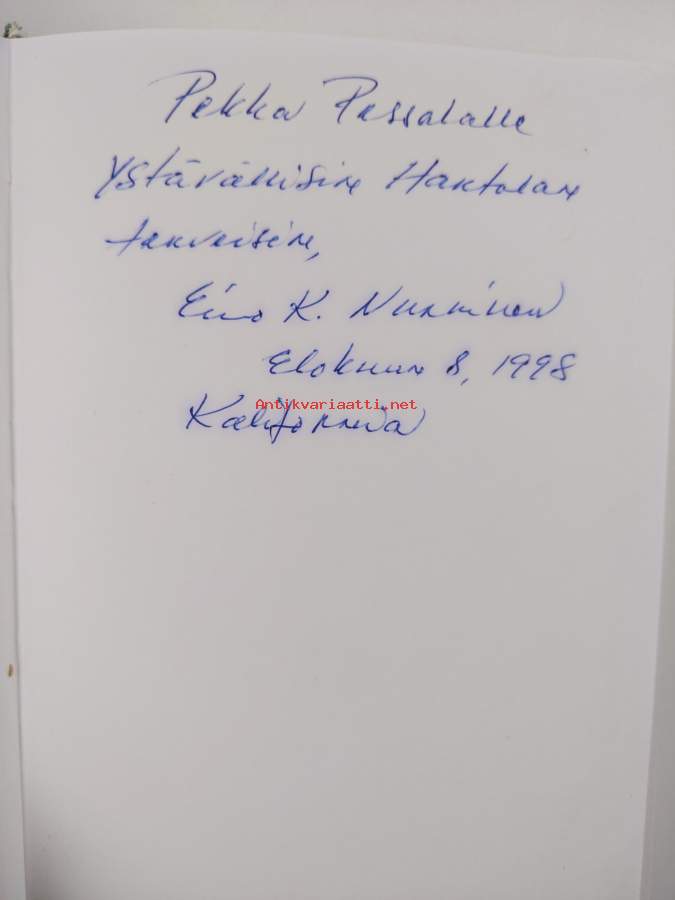 Pekka Passalalle
Ystävällisin Hartolan
terveisin,
Eino K. Nurminen
Elokuun 8, 1998
Antikvariaatti.net
Kalifornia